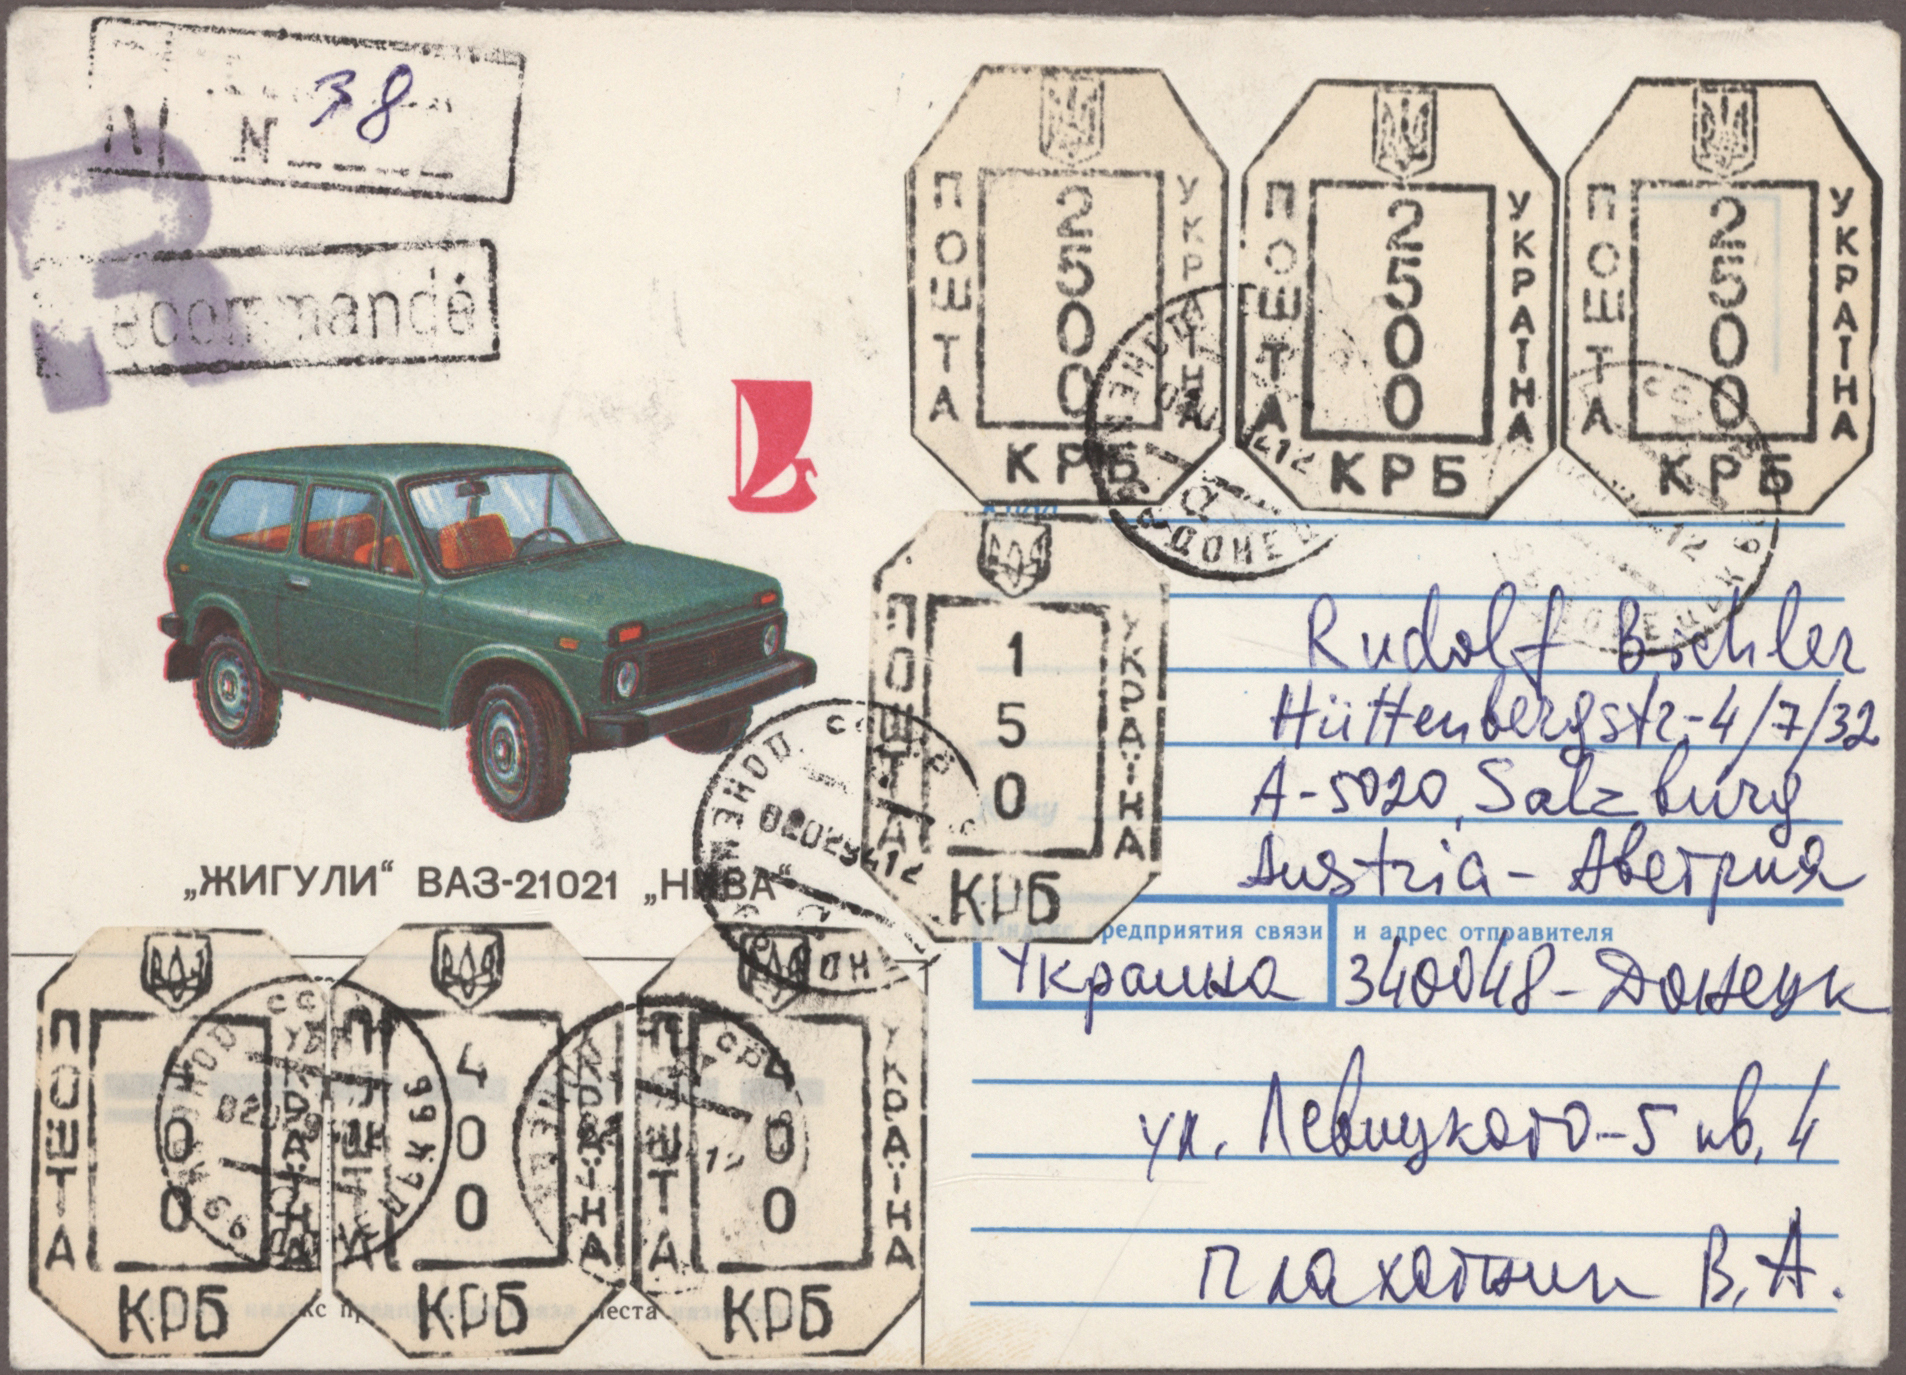 N 38
Recommandé
ПОШТА 2500 УКРАЇНА КРБ
ПОШТА 2500 УКРАЇНА КРБ
ПОШТА 2500 УКРАЇНА КРБ
ПОШТА 150 УКРАЇНА КРБ
„ЖИГУЛИ“ ВАЗ-21021 „НИВА“
Rudolf
Hüttenbergstr-4/7/32
A-5020, Salzburg
Austria - Австрия
предприятия связи и адрес отправителя
Украина 340048-Донецк
ул. Левицкого-5 кв. 4
В. А.
ПОШТА 400 УКРАЇНА КРБ
ПОШТА 400 УКРАЇНА КРБ
ПОШТА 400 УКРАЇНА КРБ
места